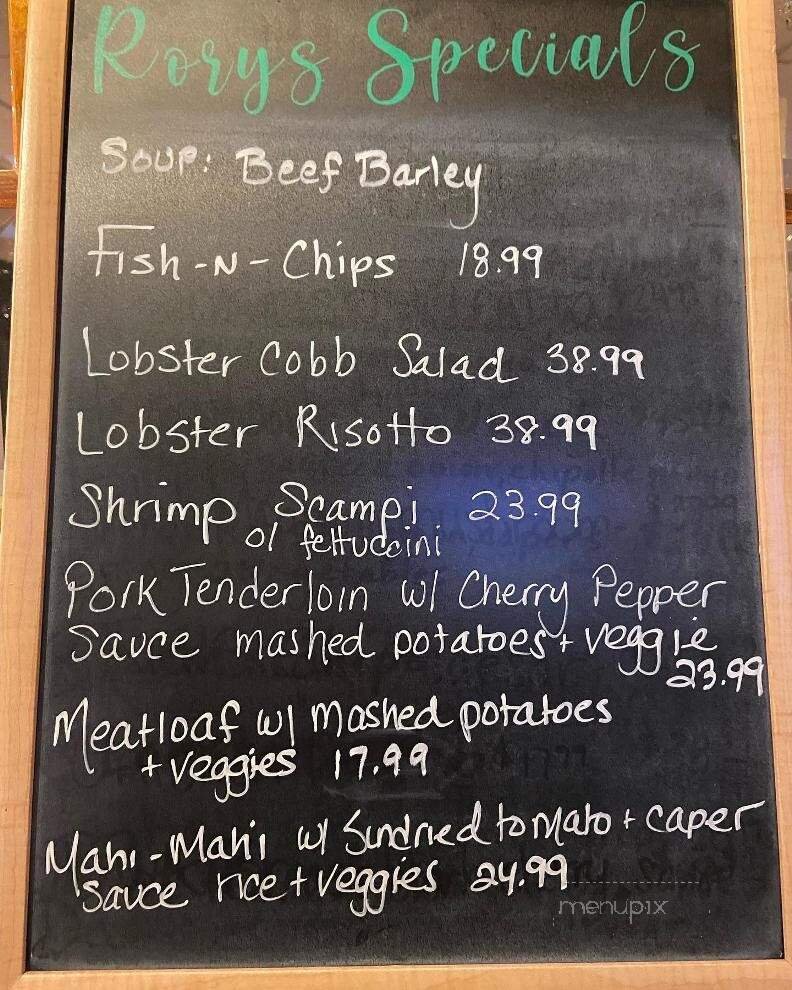 Rorys Specials
Soup: Beef Barley
Fish-N-Chips 18.99
Lobster Cobb Salad 38.99
Lobster Risotto 38.99
Shrimp Scampi 23.99
o/ fettuccini
Pork Tenderloin w/ Cherry Pepper
Sauce mashed potatoes + veggie
23.99
Meatloaf w/ mashed potatoes
+ veggies 17.99
Mahi-Mahi w/ Sundried tomato + caper
Sauce rice + veggies 24.99
menupix